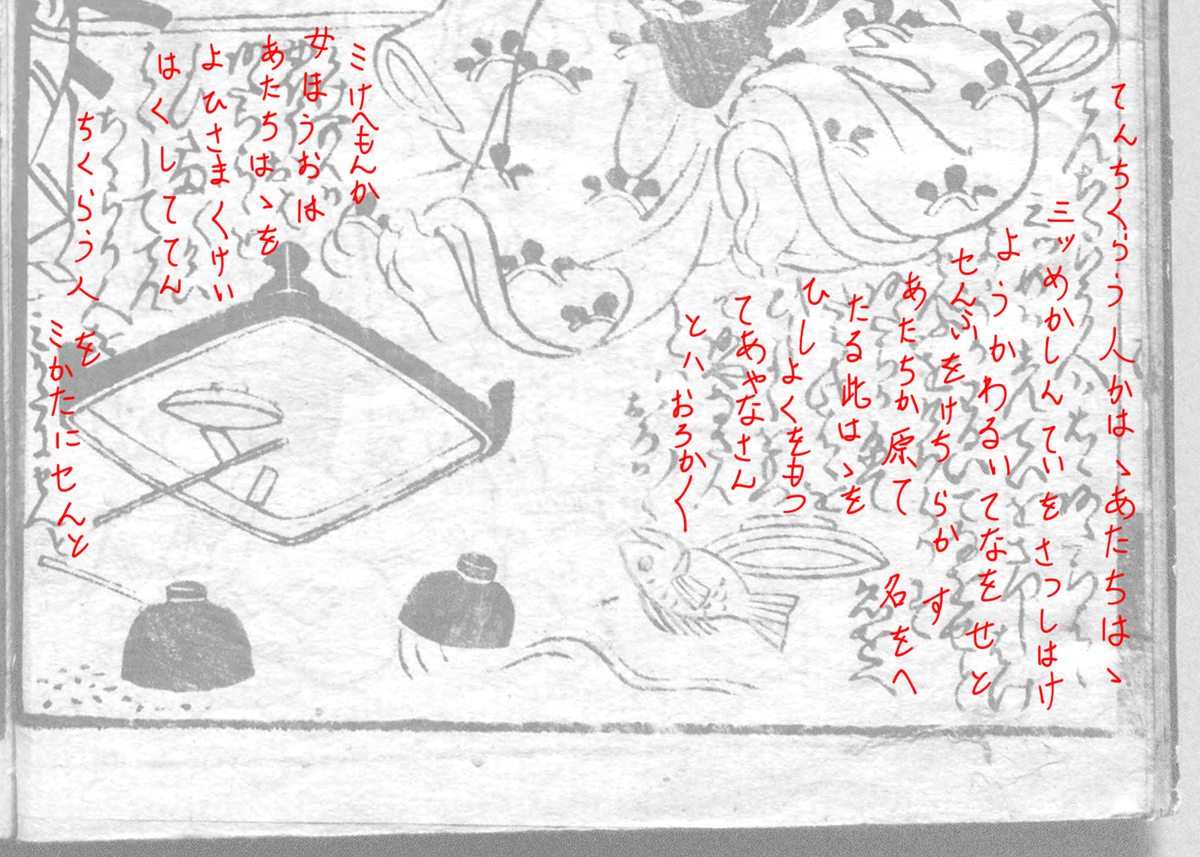 てんちくらう人かはゝあたちはゝ
三ッめかしんていをさつしはけ
ようかわるいてなをせと
せんぶをけちらかす
あたちか原て名をへ
たる此はゝを
ひしよくをもつ
てあやなさん
とハおろか〱
ミけへもんか
女ほうおは
あたちはゝを
よひさまくけい
はくしててん
ちくらう人を
ミかたにセんと